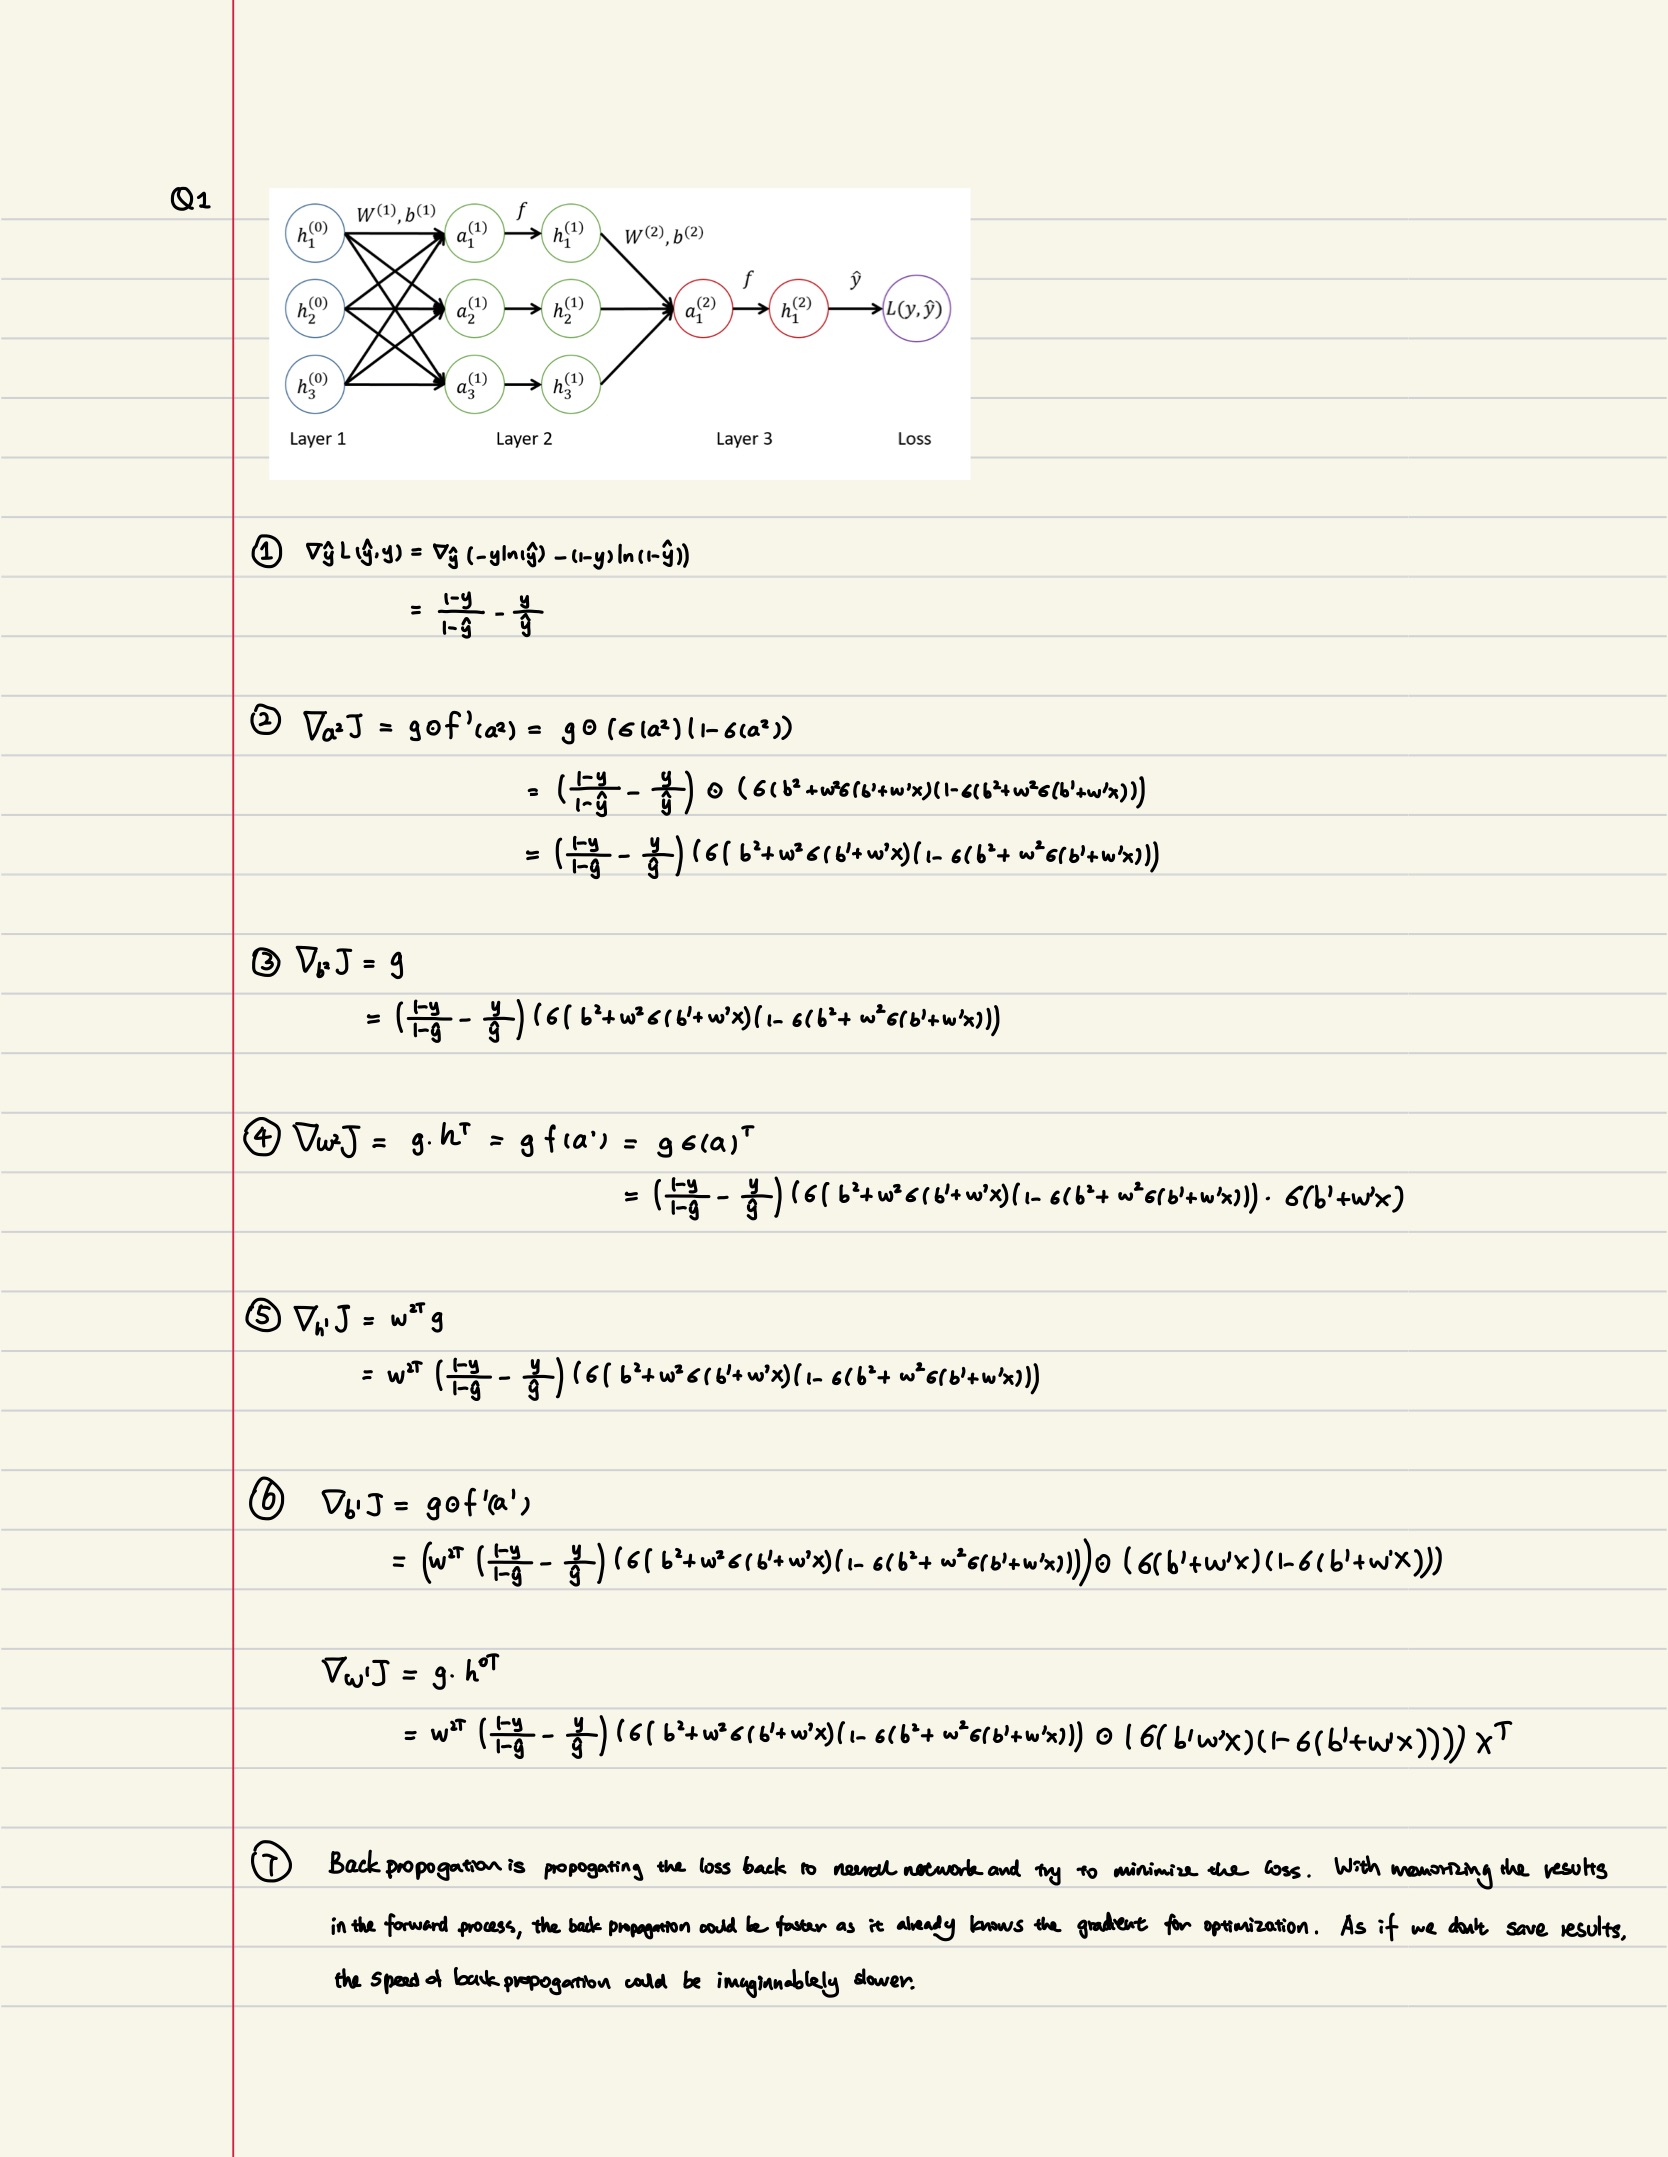 Q1
W^(1), b^(1) f
h_1^(0) a_1^(1) h_1^(1) W^(2), b^(2)
f ŷ
h_2^(0) a_2^(1) h_2^(1) a_1^(2) h_1^(2) L(y,ŷ)
h_3^(0) a_3^(1) h_3^(1)
Layer 1 Layer 2 Layer 3 Loss
① ∇ŷ L(ŷ,y) = ∇ŷ (-yln(ŷ) - (1-y)ln(1-ŷ))
= (1-y)/(1-ŷ) - y/ŷ
② ∇_a² J = g⊙f'(a²) = g⊙(σ(a²)(1-σ(a²))
= ((1-y)/(1-ŷ) - y/ŷ) ⊙ (σ(b²+w²σ(b'+w'x)(1-σ(b²+w²σ(b'+w'x)))
= ((1-y)/(1-ŷ) - y/ŷ)(σ(b²+w²σ(b'+w'x)(1-σ(b²+w²σ(b'+w'x)))
③ ∇_b² J = g
= ((1-y)/(1-ŷ) - y/ŷ)(σ(b²+w²σ(b'+w'x)(1-σ(b²+w²σ(b'+w'x)))
④ ∇_w² J = g·h^T = g f(a') = g σ(a)^T
= ((1-y)/(1-ŷ) - y/ŷ)(σ(b²+w²σ(b'+w'x)(1-σ(b²+w²σ(b'+w'x)))· σ(b'+w'x)
⑤ ∇_h' J = w^2T g
= w^2T ((1-y)/(1-ŷ) - y/ŷ)(σ(b²+w²σ(b'+w'x)(1-σ(b²+w²σ(b'+w'x)))
⑥ ∇_b' J = g⊙f'(a')
= (w^2T ((1-y)/(1-ŷ) - y/ŷ)(σ(b²+w²σ(b'+w'x)(1-σ(b²+w²σ(b'+w'x))))⊙(σ(b'+w'x)(1-σ(b'+w'x)))
∇_w' J = g·h^0T
= w^2T ((1-y)/(1-ŷ) - y/ŷ)(σ(b²+w²σ(b'+w'x)(1-σ(b²+w²σ(b'+w'x))) ⊙ (σ(b'w'x)(1-σ(b'+w'x)))) x^T
⑦ Back propogation is propogating the loss back to neural network and try to minimize the loss. With memorizing the results
in the forward process, the back propagation could be faster as it already knows the gradient for optimization. As if we don't save results,
the speed of back propogation could be imaginnablely slower.